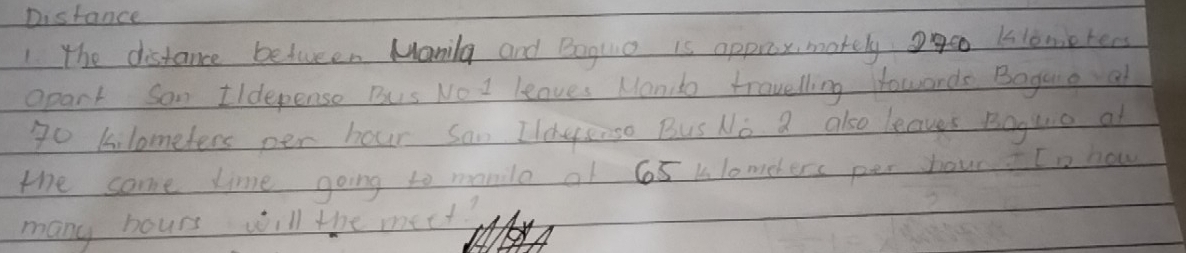 Distance
1. The distance between Manila and Baguio is approximately 270 kilometers
apart San Ildepenso Bus No 1 leaves Manila travelling towards Baguio at
70 kilometers per hour San Ildepenso Bus No 2 also leaves Baguio at
the same time going to manila at 65 kilometers per hour. In how
many hours will the meet?